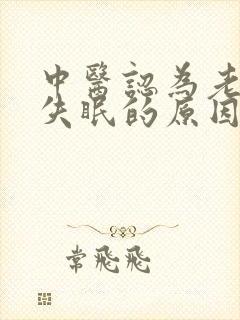 中醫認為老
失眠的原因
常飛飛